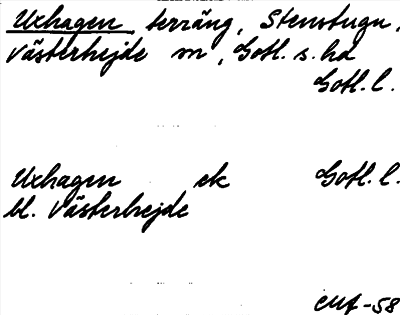 Uxhagen, terräng, Stenstugu,
Västerhejde sn, Gotl. s. hd
Gotl. l.
Uxhagen ek Gotl. l.
bl. Västerhejde
-58